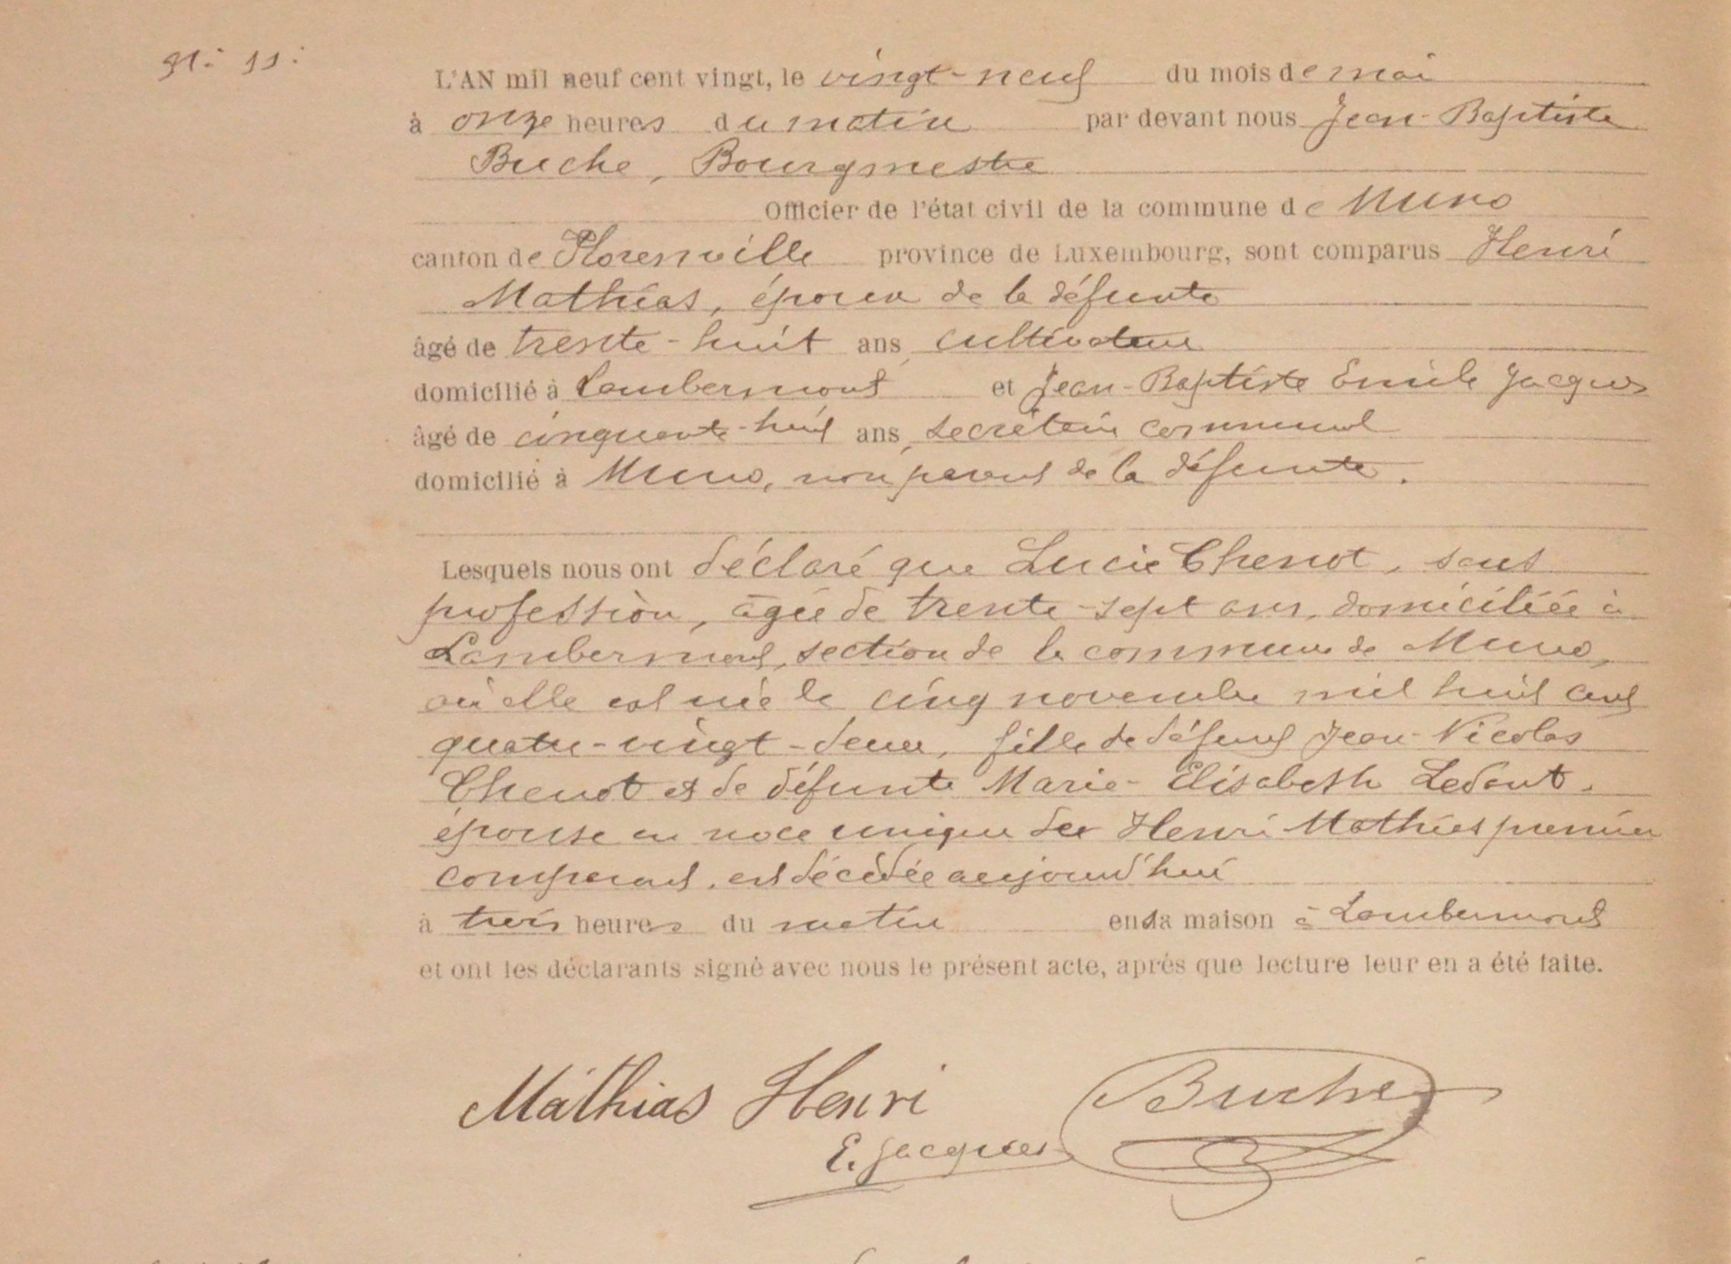 N: 11:
L'AN mil neuf cent vingt, le vingt-neuf du mois de mai
à onze heures du matin par devant nous Jean-Baptiste
Buche, Bourgmestre
Officier de l'état civil de la commune de Muno
canton de Florenville province de Luxembourg, sont comparus Henri
Mathias, époux de la défunte
âgé de trente-huit ans, cultivateur
domicilié à Lambermont et Jean-Baptiste Emile Jacques
âgé de cinquante-huit ans, secrétaire communal
domicilié à Muno, non parent de la défunte.
Lesquels nous ont déclaré que Lucie Chenot, sans
profession, âgée de trente-sept ans, domiciliée à
Lambermont, section de la commune de Muno,
où elle est née le cinq novembre mil huit cent
quatre-vingt-deux, fille de défunt Jean-Nicolas
Chenot et de défunte Marie-Elisabeth Ledent,
épouse en noce unique de Henri Mathias premier
comparant, est décédée aujourd'hui
à trois heures du matin en sa maison à Lambermont
et ont les déclarants signé avec nous le présent acte, après que lecture leur en a été faite.
Mathias Henri Buche
E. Jacques